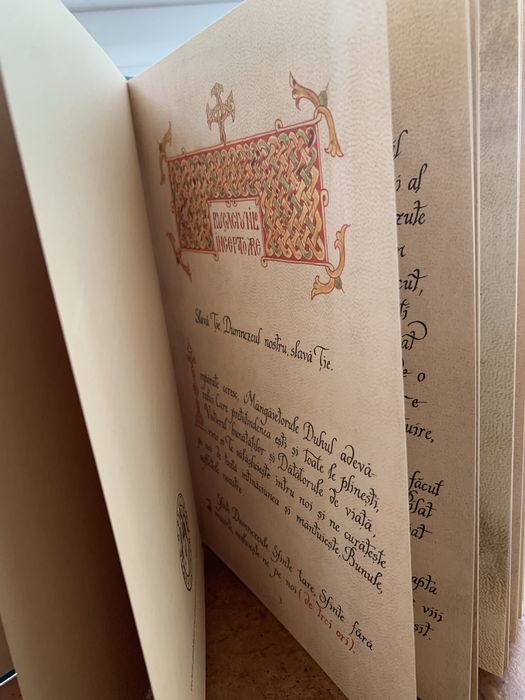 RUGĂCIUNILE
ÎNCEPĂTOARE
Slavă Ție, Dumnezeul nostru, slavă Ție.
Împărate ceresc, Mângâietorule, Duhul adevă-
rului, Care pretutindenea ești și toate le plinești,
Vistierul bunătăților și Dătătorule de viață,
vino și Te sălășluiește întru noi și ne curățește
pe noi de toată întinăciunea și mântuiește, Bunule,
sufletele noastre.
Sfinte Dumnezeule, Sfinte tare, Sfinte fără
de moarte, miluiește-ne pe noi (de trei ori).
al
cut,
e o
uire,
făcut
apta
viii